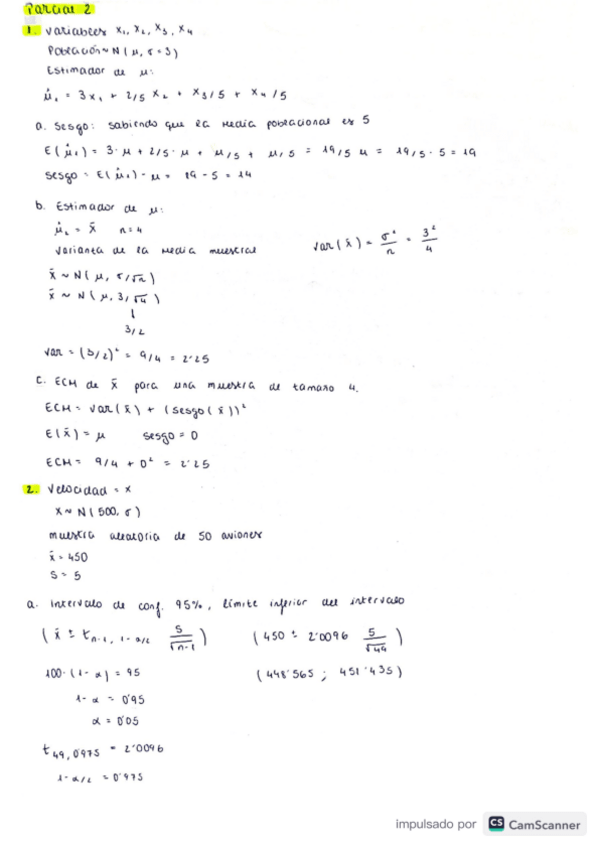 Parcial 2
1. Variables x₁, x₂, x₃, x₄
Población ~ N(μ, σ = 3)
Estimador de μ:
μ̂₁ = 3x₁ + 2/5 x₂ + x₃/5 + x₄/5
a. Sesgo: sabiendo que la media poblacional es 5
E(μ̂₁) = 3·μ + 2/5·μ + μ/5 + μ/5 = 19/5 μ = 19/5 · 5 = 19
sesgo = E(μ̂₁) - μ = 19 - 5 = 14
b. Estimador de μ:
μ̂₂ = x̄ n = 4
Varianza de la media muestral
var(x̄) = σ²/n = 3²/4
x̄ ~ N(μ, σ/√n)
x̄ ~ N(μ, 3/√4)
↓
3/2
var = (3/2)² = 9/4 = 2'25
c. ECM de x̄ para una muestra de tamaño 4.
ECM = var(x̄) + (sesgo(x̄))²
E(x̄) = μ sesgo = 0
ECM = 9/4 + 0² = 2'25
2. Velocidad = x
x ~ N(500, σ)
muestra aleatoria de 50 aviones
x̄ = 450
s = 5
a. Intervalo de conf. 95%, límite inferior del intervalo
(x̄ ± t n-1, 1-α/2 s/√n-1) (450 ± 2'0096 5/√49)
100·(1-α) = 95 (448'565 ; 451'435)
1-α = 0'95
α = 0'05
t 49, 0'975 = 2'0096
1-α/2 = 0'975
impulsado por CS CamScanner